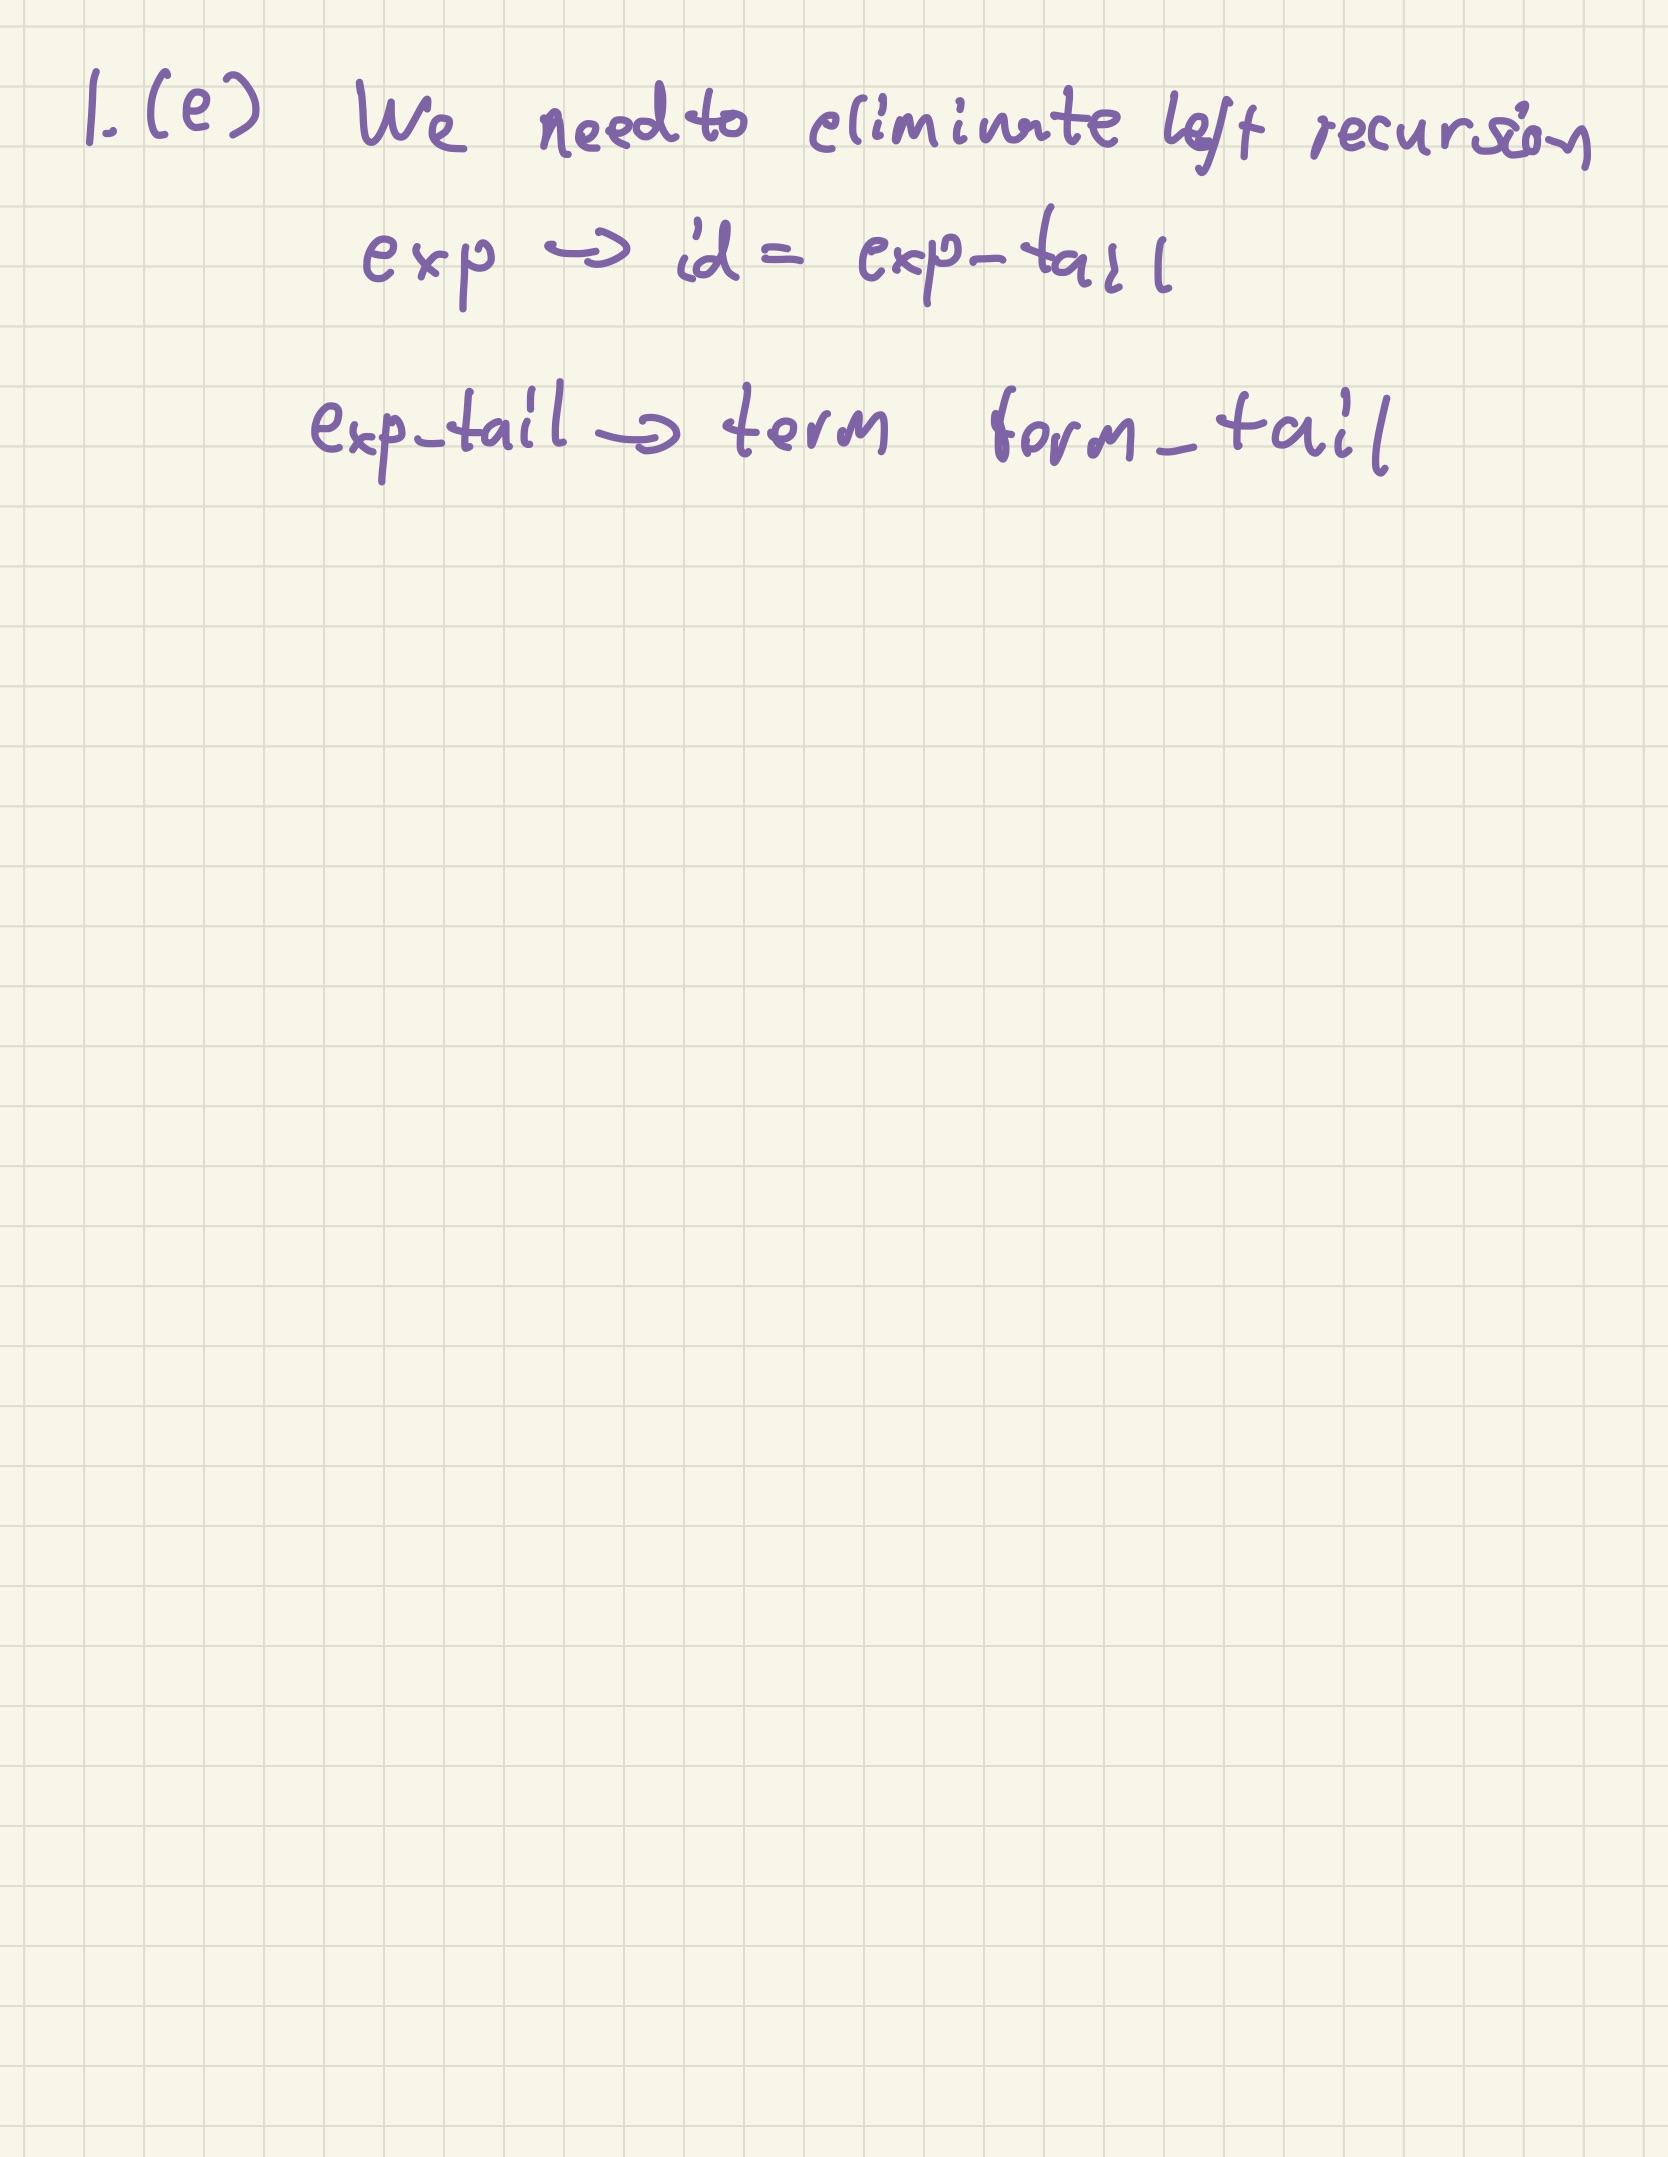 1. (e) We need to eliminate left recursion
exp → id = exp_tail
exp_tail → term form_tail